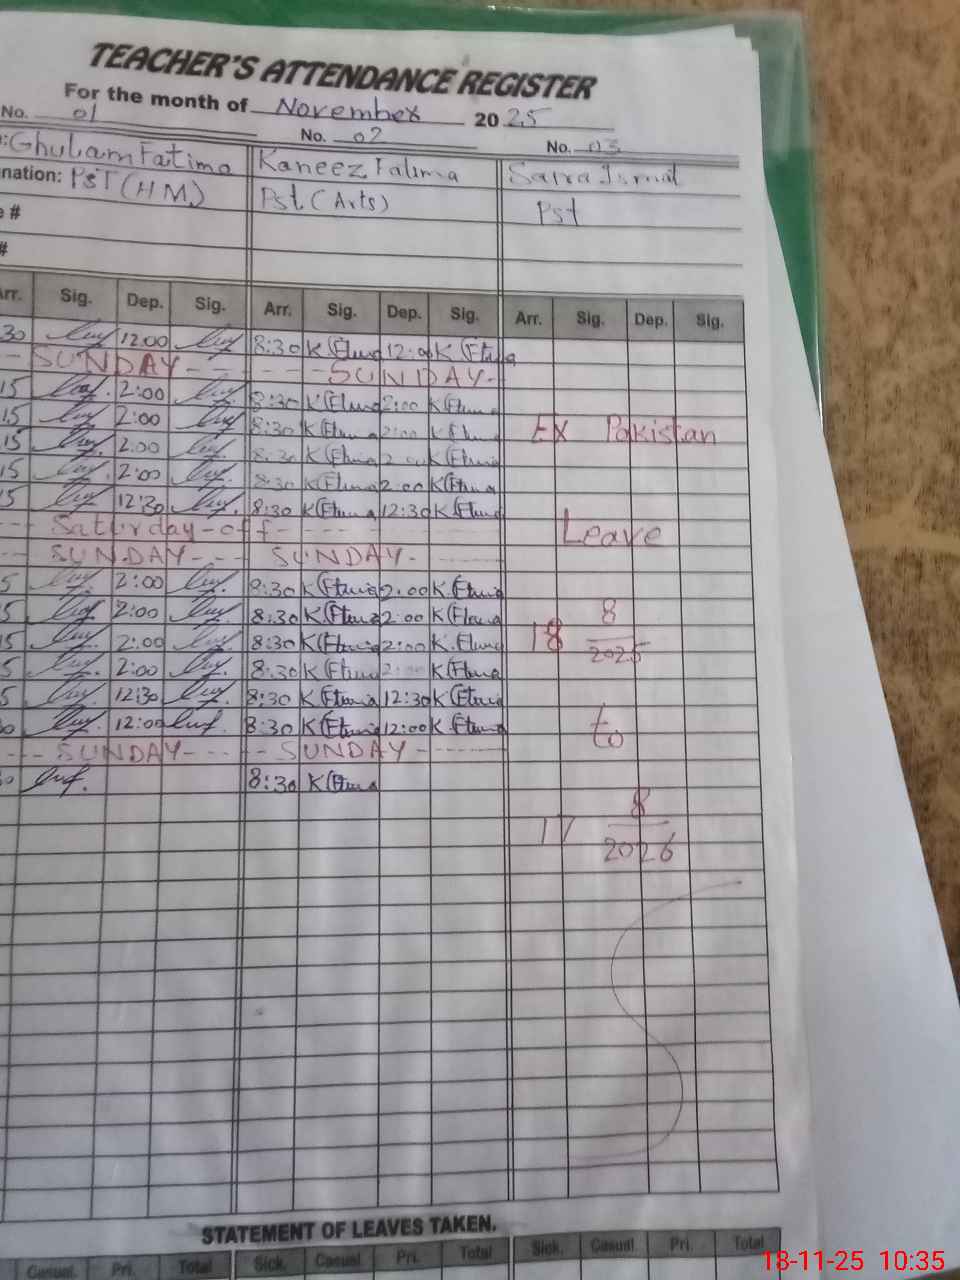 TEACHER'S ATTENDANCE REGISTER
For the month of November 2025
No. 01 No. 02 No. 03
Ghulam Fatima Kaneez Fatima Saira Ismat
nation: PST (HM) Pst (Arts) Pst
#
#
Arr. Sig. Dep. Sig. Arr. Sig. Dep. Sig. Arr. Sig. Dep. Sig.
30 12:00 8:30 K Ftima 12:00 K Ftima
SUNDAY SUNDAY
15 2:00 8:30 K Ftima 2:00 K Ftima
15 2:00 8:30 K Ftima 2:00 K Ftima Ex Pakistan
15 2:00 8:30 K Ftima 2:00 K Ftima
15 2:00 8:30 K Ftima 2:00 K Ftima
15 12:30 8:30 K Ftima 12:30 K Ftima
Saturday off Leave
SUNDAY SUNDAY
5 2:00 8:30 K Ftima 2:00 K Ftima
5 2:00 8:30 K Ftima 2:00 K Ftima
15 2:00 8:30 K Ftima 2:00 K Ftima 18 8/2025
5 2:00 8:30 K Ftima 2:00 K Ftima
5 12:30 8:30 K Ftima 12:30 K Ftima
12:00 8:30 K Ftima 12:00 K Ftima to
SUNDAY SUNDAY
8:30 K Ftima
17 8/2026
STATEMENT OF LEAVES TAKEN.
Casual. Pri. Total Sick. Casual Pri. Total Sick. Casual. Pri. Total
18-11-25 10:35